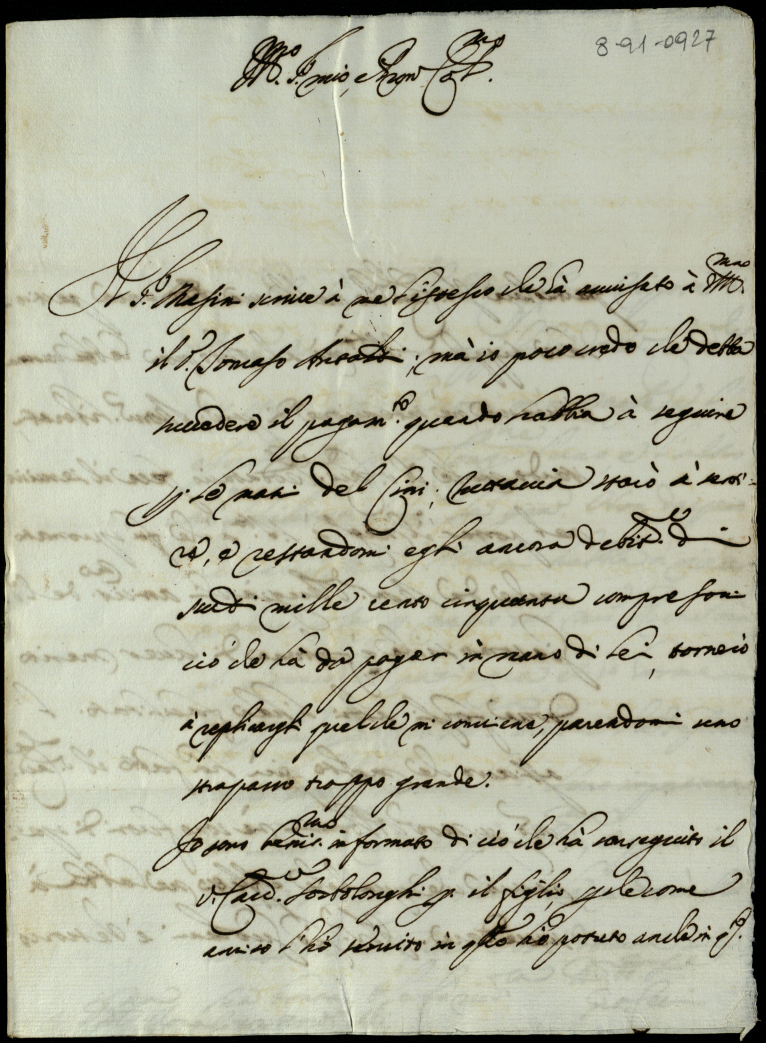 8-91-0927
Ill.mo S.r mio, e Pron Col.mo
Il S.r Masini scrive à me l'istesso che hà avvisato à V.S. Ill.ma
il S.r Tomaso ; mà io poco credo che debba
succedere il pagam.to quando habbia à seguire
p. le mani del Cini; tuttavia starò à senti-
re, e restandomi egli ancora debit.re di
scudi mille cento cinquanta compresoni
ciò che hà da pagar in mano di lei, tornerò
à replicargli quel che mi conviene, parendomi uno
strapazzo troppo grande.
Io sono beniss.mo informato di ciò che hà conseguito il
S. Cav.re Sorbolonghi p. il figlio, che come
amico l'hò servito in q.to hò potuto anche in q.